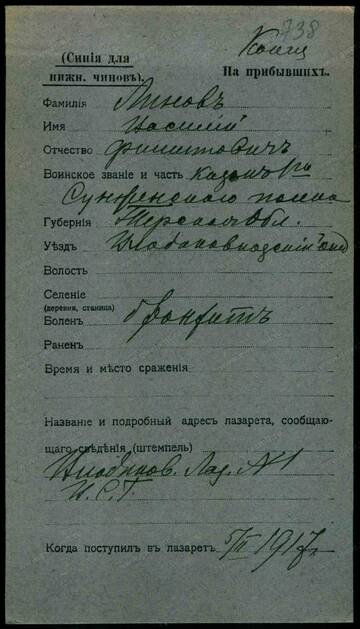 738
Копия
(Синія для
нижн. чиновъ).
На прибывшихъ.
Фамилія Линовъ
Имя Василій
Отчество Филиповичъ
Воинское званіе и часть казакъ 1го
Сунженского полка
Губернія Терская Обл.
Уѣздъ Владикавказскій
Волость
Селеніе
(деревня, станица)
Боленъ бронхитъ
Раненъ
Время и мѣсто сраженія
Названіе и подробный адресъ лазарета, сообщаю-
щаго свѣдѣнія (штемпель)
Владиков. Лаз. №1
В.С.Г.
Когда поступилъ въ лазаретъ 5/II 1917г.